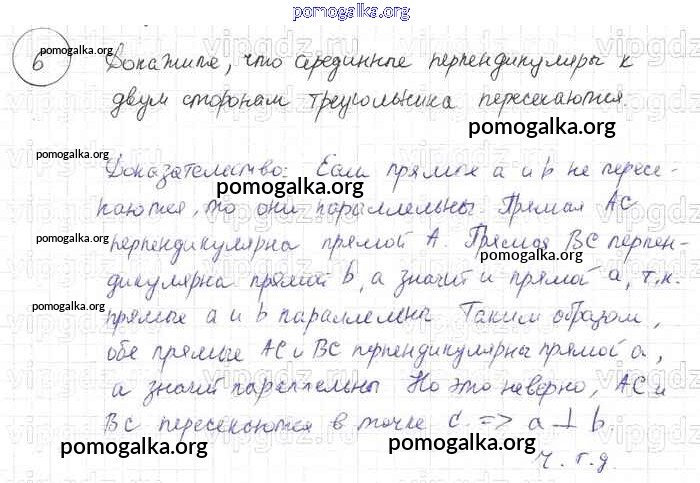 pomogalka.org
6 Докажите, что серединные перпендикуляры к
двум сторонам треугольника пересекаются.
Доказательство: Если прямые a и b не пересе-
каются, то они параллельны. Прямая AC
перпендикулярна прямой A. Прямая BC перпен-
дикулярна прямой b, а значит и прямой a, т.к.
прямые a и b параллельны Таким образом,
обе прямые AC и BC перпендикулярны прямой a,
а значит параллельны Но это неверно, AC и
BC пересекаются в точке C. => a ⊥ b.
ч.т.д.
pomogalka.org
pomogalka.org
pomogalka.org
pomogalka.org
pomogalka.org
pomogalka.org
pomogalka.org
pomogalka.org
pomogalka.org